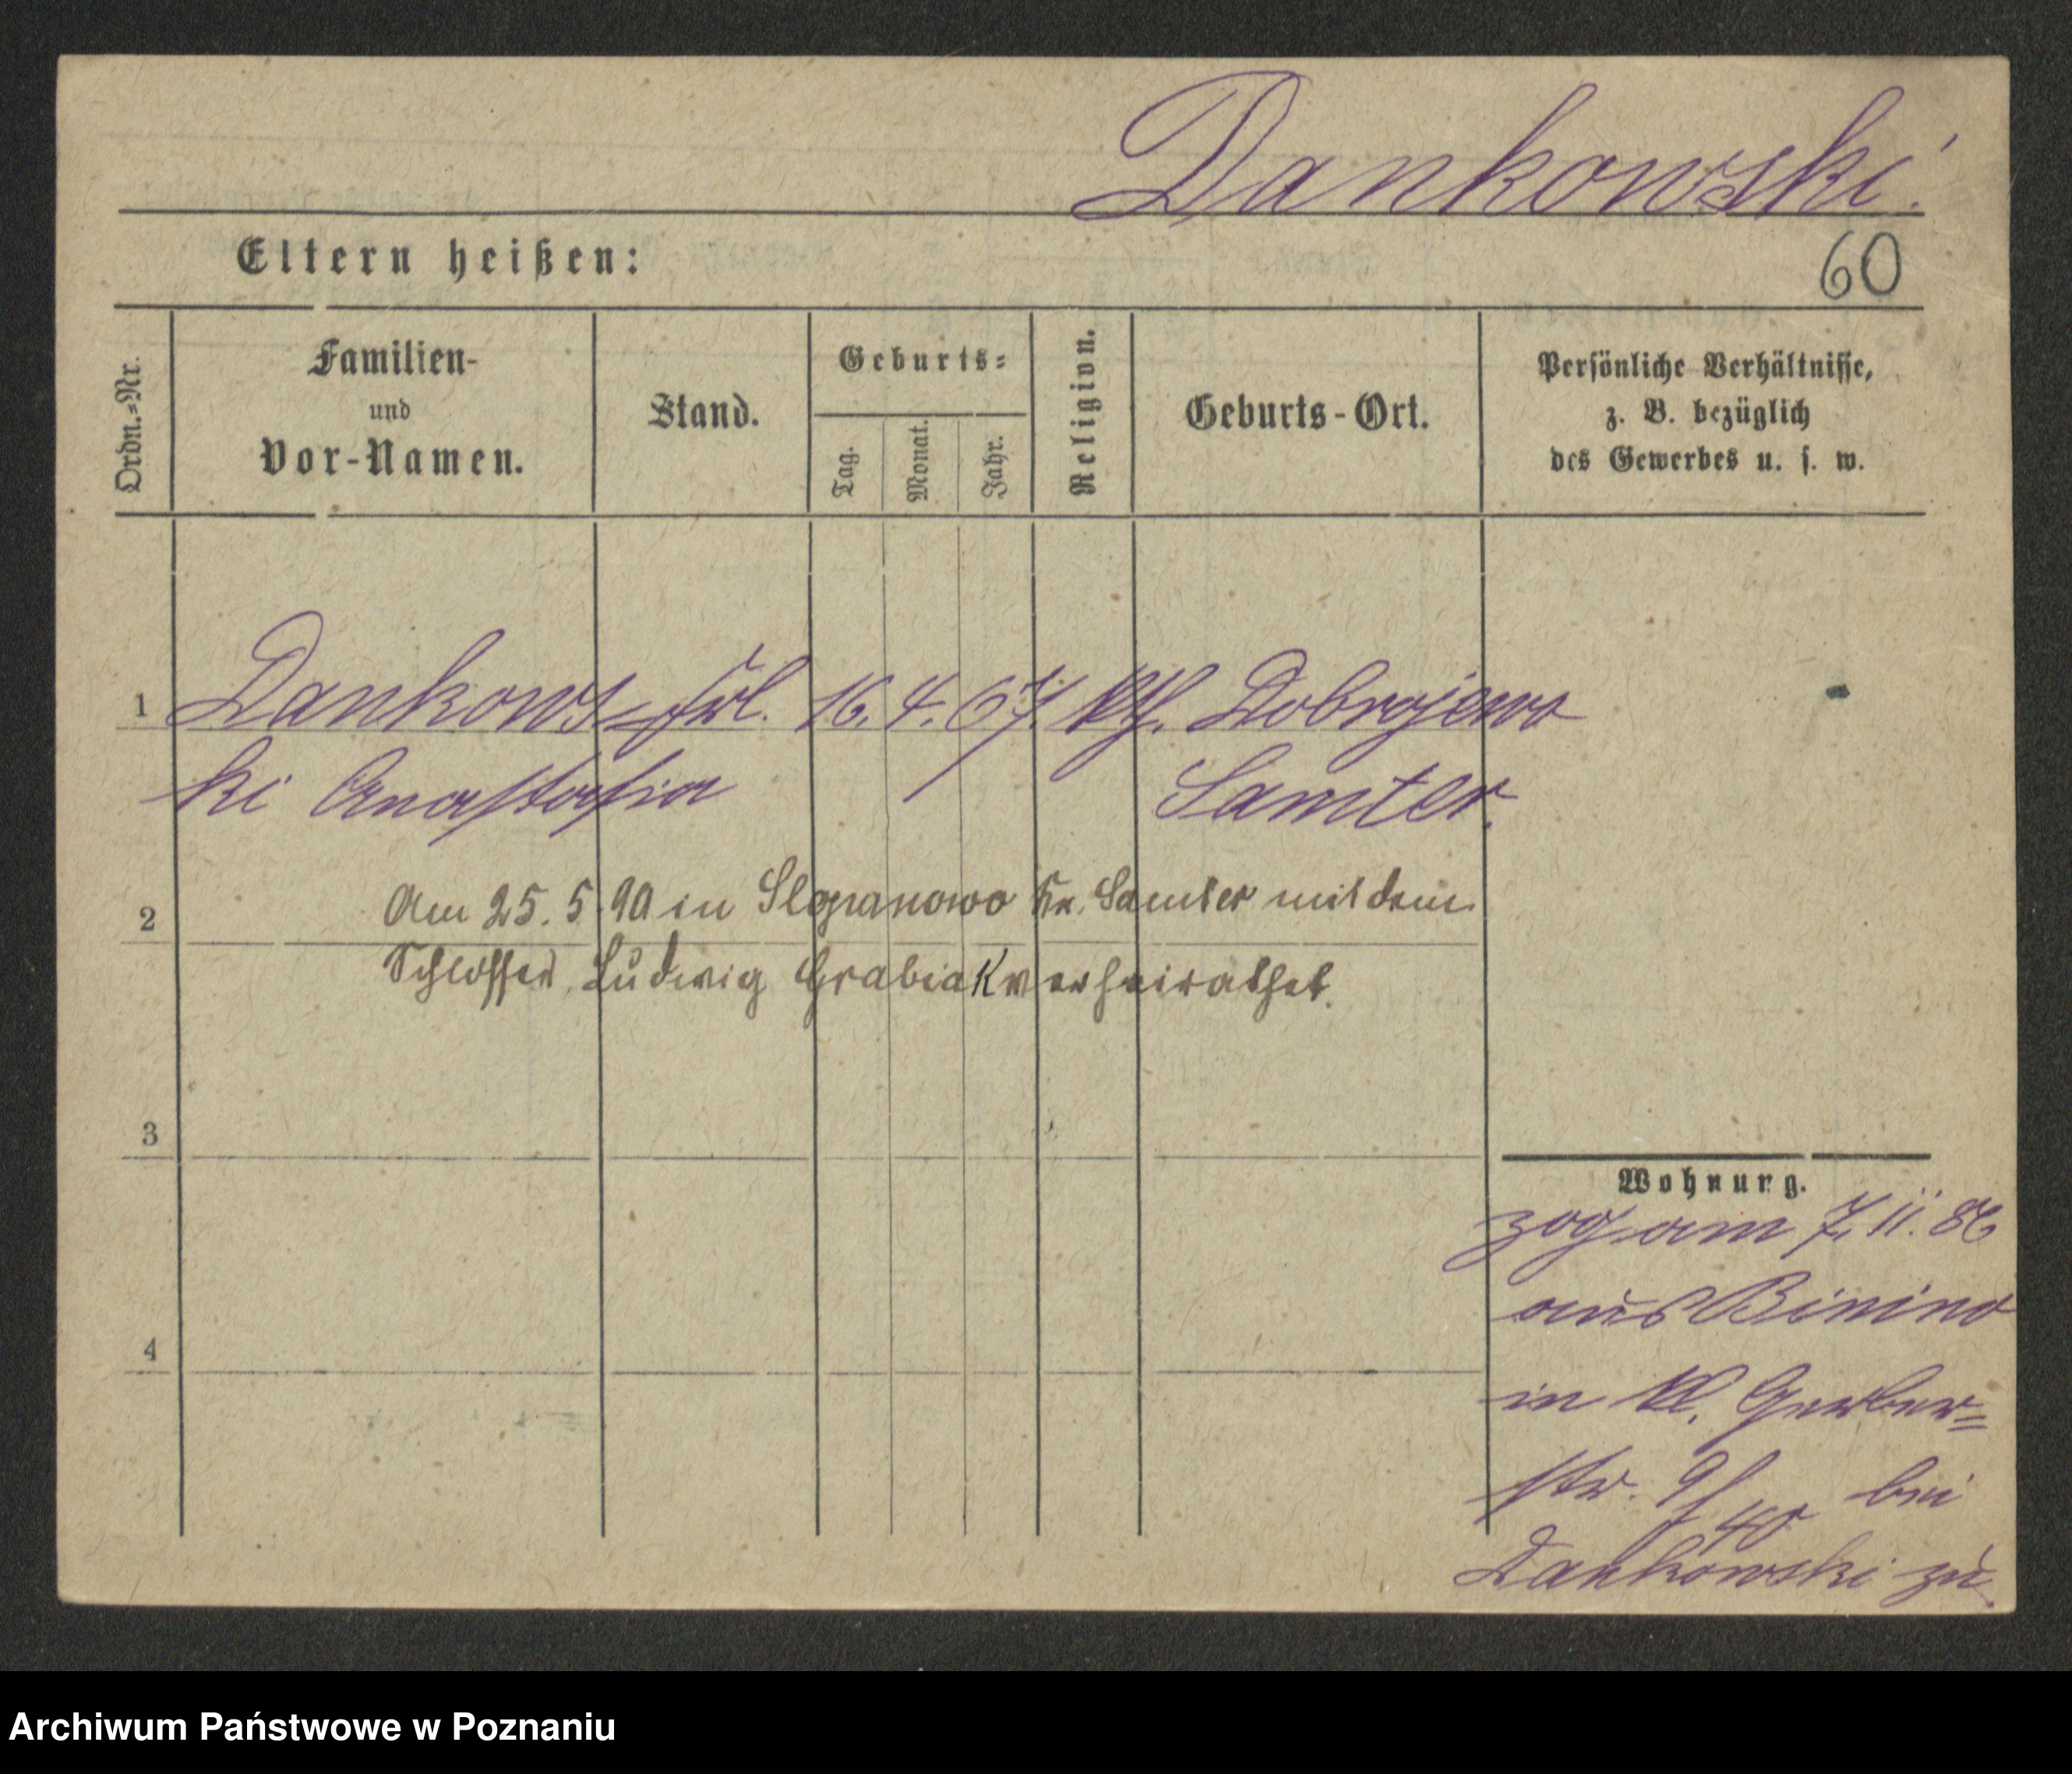 Dankowski.
Eltern heißen:
60
Ordn.-Nr.
Familien-
und
Vor-Namen.
Stand.
Geburts-
Tag.
Monat.
Jahr.
Religion.
Geburts-Ort.
Persönliche Verhältnisse,
z. B. bezüglich
des Gewerbes u. s. w.
1 Dankows- Frl. 16. 4. 67. kth. Dobrojewo
ki Anastasia Samter.
2 Am 25. 5. 90 in Slopanowo Kr. Samter mit dem
Schlosser Ludwig Grabiak verheirathet.
3
4
Wohnung.
zog am 7. 11. 86
aus Binino
in kl. Gerber=
str. 9/40 bei
Dankowski zu.
Archiwum Państwowe w Poznaniu